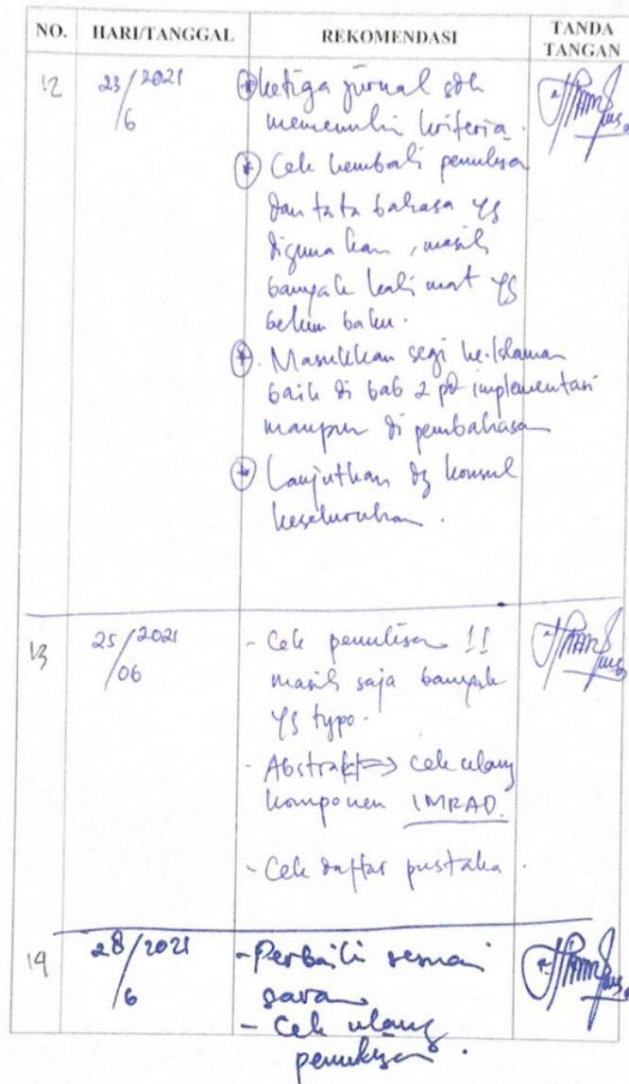 NO. HARI/TANGGAL REKOMENDASI TANDA TANGAN
12 23/2021 /6 * ketiga jurnal sdh
memenuhi kriteria.
* Cek kembali penulisan
dan tata bahasa yg
digunakan, masih
banyak kalimat yg
belum baku.
* Masukkan segi ke.Islaman
baik di bab 2 pd implementasi
maupun di pembahasan
* Lanjutkan dg konsul
keseluruhan.
13 25/2021 /06 - Cek penulisan !!
masih saja banyak
yg typo.
- Abstrak => cek ulang
komponen IMRAD.
- Cek daftar pustaka.
14 28/2021 /6 - Perbaiki sesuai
saran
- Cek ulang
penulisan.